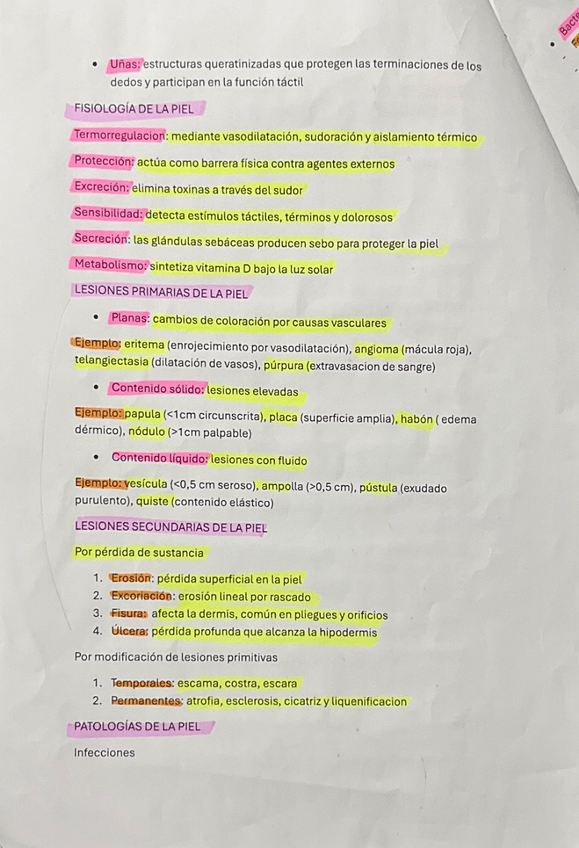 Bacte
• Uñas: estructuras queratinizadas que protegen las terminaciones de los
dedos y participan en la función táctil
FISIOLOGÍA DE LA PIEL
Termorregulacion: mediante vasodilatación, sudoración y aislamiento térmico
Protección: actúa como barrera física contra agentes externos
Excreción: elimina toxinas a través del sudor
Sensibilidad: detecta estímulos táctiles, términos y dolorosos
Secreción: las glándulas sebáceas producen sebo para proteger la piel
Metabolismo: sintetiza vitamina D bajo la luz solar
LESIONES PRIMARIAS DE LA PIEL
• Planas: cambios de coloración por causas vasculares
Ejemplo: eritema (enrojecimiento por vasodilatación), angioma (mácula roja),
telangiectasia (dilatación de vasos), púrpura (extravasacion de sangre)
• Contenido sólido: lesiones elevadas
Ejemplo: papula (<1cm circunscrita), placa (superficie amplia), habón ( edema
dérmico), nódulo (>1cm palpable)
• Contenido líquido: lesiones con fluido
Ejemplo: vesícula (<0,5 cm seroso), ampolla (>0,5 cm), pústula (exudado
purulento), quiste (contenido elástico)
LESIONES SECUNDARIAS DE LA PIEL
Por pérdida de sustancia
1. Erosión: pérdida superficial en la piel
2. Excoriación: erosión lineal por rascado
3. Fisura: afecta la dermis, común en pliegues y orificios
4. Úlcera: pérdida profunda que alcanza la hipodermis
Por modificación de lesiones primitivas
1. Temporales: escama, costra, escara
2. Permanentes: atrofia, esclerosis, cicatriz y liquenificacion
PATOLOGÍAS DE LA PIEL
Infecciones